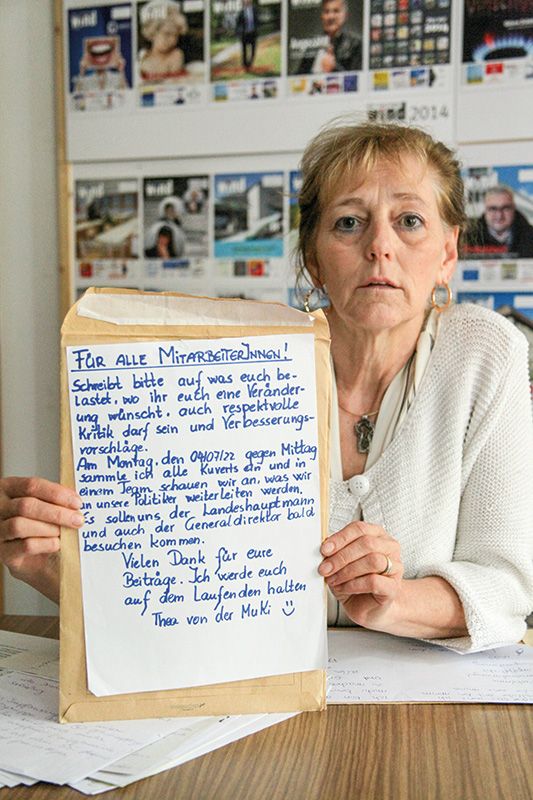 2014
FÜR ALLE MITARBEITERINNEN!
Schreibt bitte auf was euch be-
lastet, wo ihr euch eine Veränder-
ung wünscht, auch respektvolle
Kritik darf sein und Verbesserungs-
vorschläge.
Am Montag, den 04/07/22 gegen Mittag
sammle ich alle Kuverts ein und in
einem Team schauen wir an, was wir
an unsere Politiker weiterleiten werden.
Es sollen uns der Landeshauptmann
und auch der Generaldirektor bald
besuchen kommen.
Vielen Dank für eure
Beiträge. Ich werde euch
auf dem Laufenden halten
Thea von der MuKi